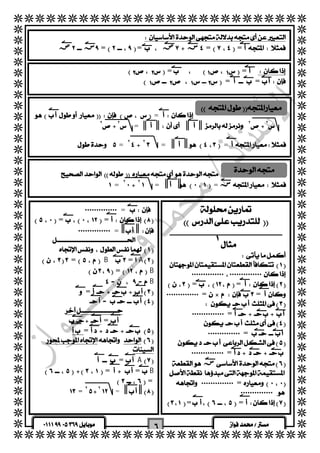 التعبير عن أى متجه بدلالة متجهى الوحدة الأساسيان :
فمثلا : المتجه أ = ( ٤ ، ٧ ) = ٤ س + ٧ ص ، ب = ( ٩ ، – ٢ ) = ٩ س – ٢ ص
إذا كان : أ = ( س١ ، ص١ ) ، ب = ( س٢ ، ص٢ )
فإن : أب = ب – أ = ( س٢ – س١ ، ص٢ – ص١ )
معيار المتجه (( طول المتجه ))
إذا كان : أ = ( س ، ص ) فإن : (( معيار أو طول أب ) هو
س٢ + ص٢ ونرمز له بالرمز || أ || أى أن : || أ || = √ س٢ + ص٢
فمثلا : معيار المتجه أ = ( ٣ ، ٤ ) هو || أ || = √ ٣٢ + ٤٢ = ٥ وحدة طول
متجه الوحدة
متجه الوحدة هو أى متجه معياره (( طوله )) الواحد الصحيح
فمثلا : معيار المتجه س = ( ١ ، ٠ ) هو || أ || = √ ١٢ + ٠٢ = ١
تمارين محلولة
(( للتدريب على الدرس ))
مثال ١
أكمل ما يأتى :
(١) تتكافأ القطعتان المستقيمتان الموجهتان
إذا كان .............. ، ..............
(٢) إذا كان : أ = ( م ، ١٢ ) ، ب = ( ٣ ، ن )
وكان أ = ٢ ب فإن : م × ن = ..............
(٣) فى المثلث أ ب جـ يكون :
أب + ب جـ + جـ أ = ..............
(٤) فى أى مثلث أ ب جـ يكون
أب – جـ ب = ..............
(٥) فى الشكل الرباعى أ ب جـ د يكون
ب جـ + جـ د + د أ = ..............
(٦) متجه الوحدة الأساسى هو القطعة
المستقيمة الموجهة التى مبدؤها نقطة الأصل
( ٠ ، ٠ ) ومعياره = .............. واتجاهه
هو ..............
(٧) إذا كان : أ = ( ٥ ، – ٦ ) ، أب = ( ١ ، ٣ )
فإن : ب = ..............
(٨) إذا كان : أ = ( ١٢ ، ٠ ) ، ب = ( ٠ ، ٥ )
فإن : || أب || = ..............
الحــــــــل
(١) لهما نفس الطول ، ونفس الإتجاه
(٤) أب – جـ ب = أ جـ
حــــــل آخر
(٥) ب جـ + جـ د + د أ = ب أ
(٦) الواحد واتجاهه الإتجاه الموجب لمحور
السينات
مستر / محمد فواز
٦
موبايل ٣٦٩ ٠٥ ٩٩ ٠١١١